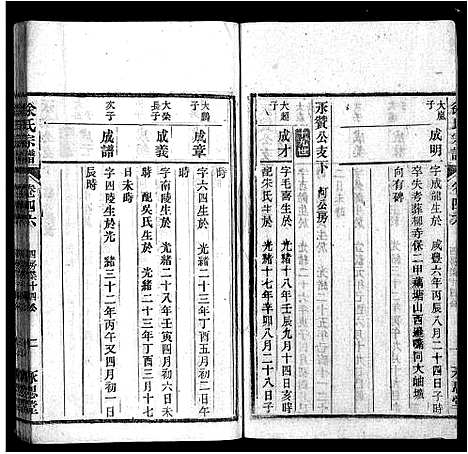 大嵐
子
成明
字成龍生於 咸豐六年丙辰八月二十四日子時
卒失考葬棚寺保二甲藕塘山西邊嘴同大岫墳
向有碑
永贊公支下 柯公房
大超
子
成才
字毛喜生於 光緒十八年壬辰九月十四日亥時
配朱氏生於 光緒十七年辛卯八月二十八日子
時
大鵬
子
成章
字六四生於 光緒二十三年丁酉五月初二日午
時
大榮
長子
成義
字南陵生於 光緒二十八年壬寅四月初六日未
時 配吳氏生於 光緒二十三年丁酉三月十七
日未時
次子
成譜
字四陵生於光緒三十二年丙午又四月初一日
辰時
徐氏宗譜
卷四六
承思堂